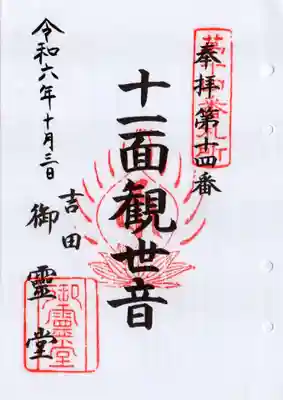 奉拝第十四番
十一面観世音
令和六年十月三日
吉田
御靈堂
御靈堂